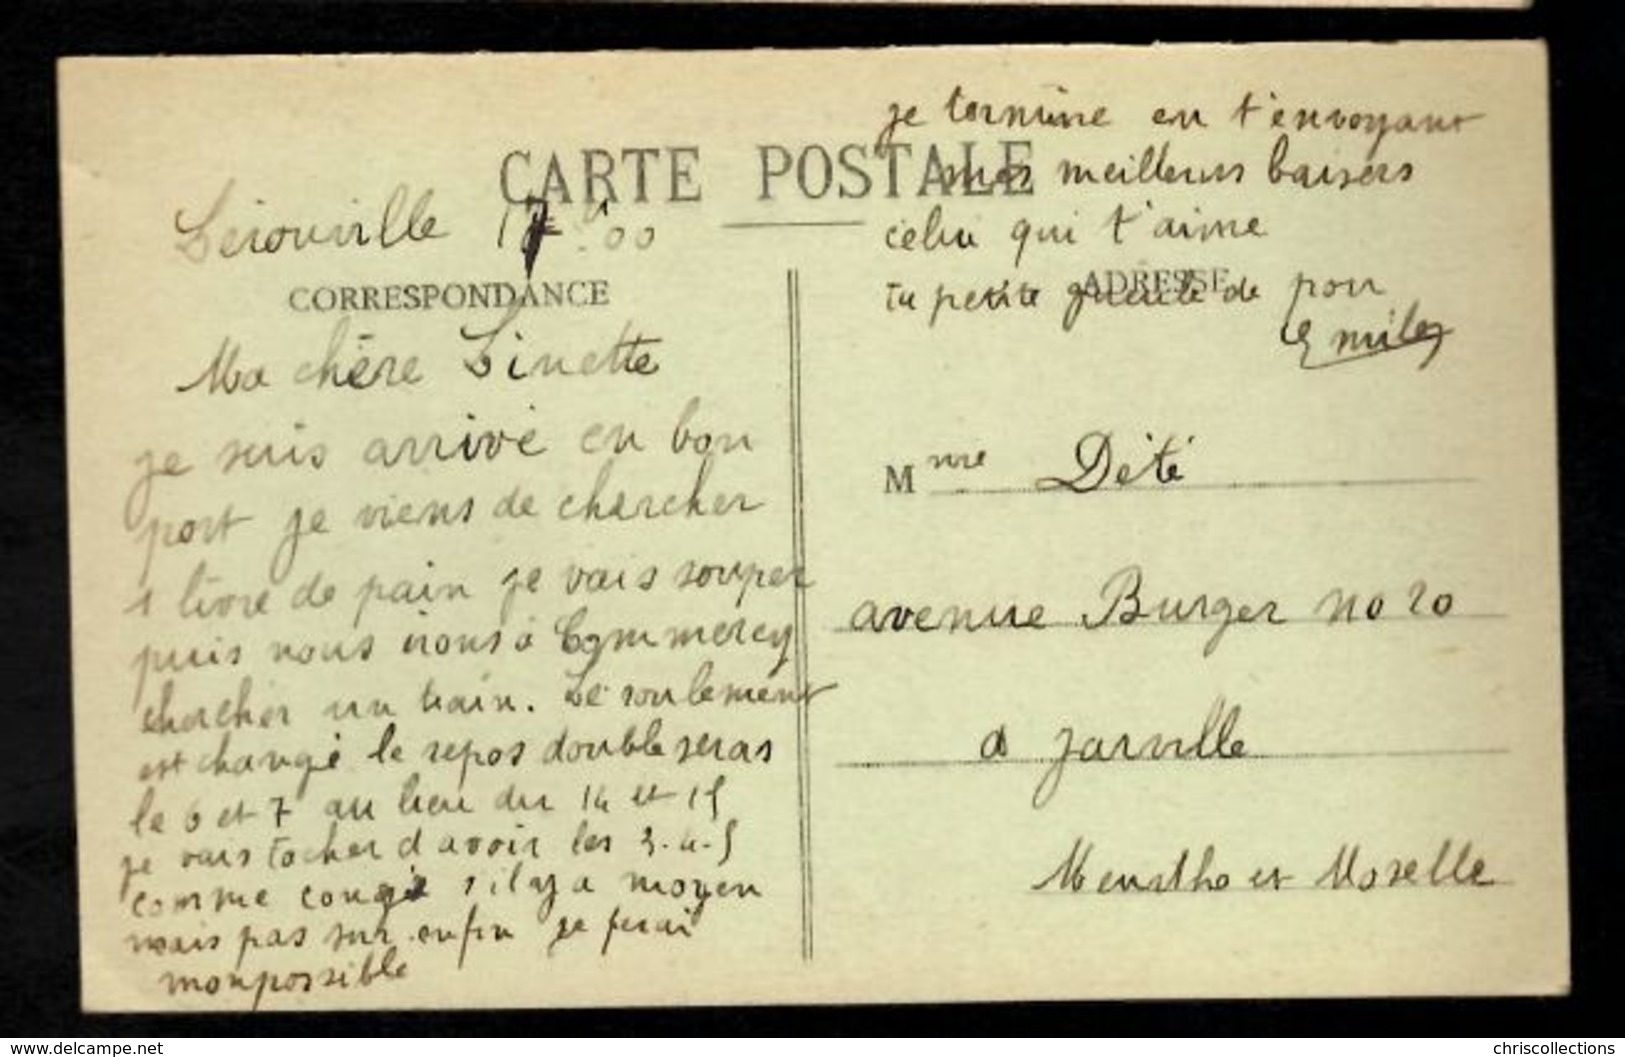 CARTE POSTALE
Lérouville 17h00
CORRESPONDANCE
Ma chère Linette
je suis arrivé en bon
port je viens de chercher
1 livre de pain je vais souper
puis nous irons à Commercy
chercher un train. Le roulement
est changé le repos double seras
le 6 et 7 au lieu du 14 et 15
je vais tocher d avoir les 3-4-5
comme congé s il y a moyen
mais pas sur enfin je ferai
mon possible
je termine en t'envoyant
mes meilleurs baisers
celui qui t'aime
ta petite gueule de
Emile
ADRESSE
Mme Dété
avenue Burger no 20
a Jarville
Meurthe et Moselle
www.delcampe.net
chriscollections